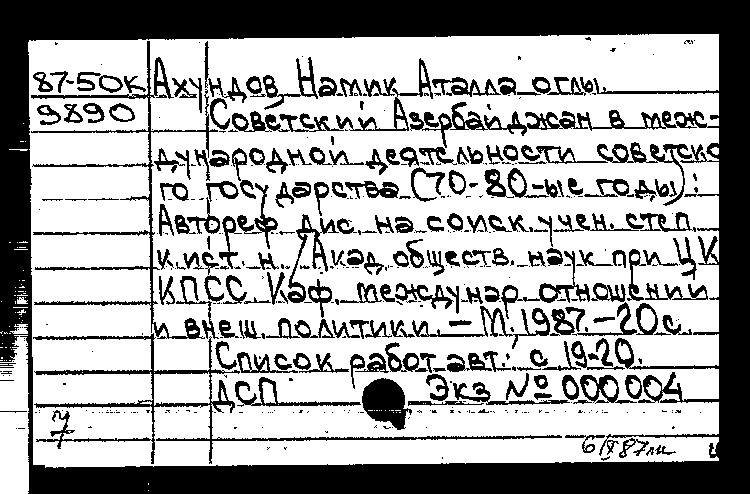 87-50К Ахундов Намик Аталла оглы.
9890 Советский Азербайджан в меж-
дународной деятельности советско
го государства (70-80-ые годы):
Автореф. дис. на соиск. учен. степ.
к. ист. н. /Акад. обществ. наук при ЦК
КПСС. Каф. междунар. отношений
и внеш. политики. – М. 1987. – 20 с.
Список работ авт.: с 19-20.
ДСП Экз № 000004